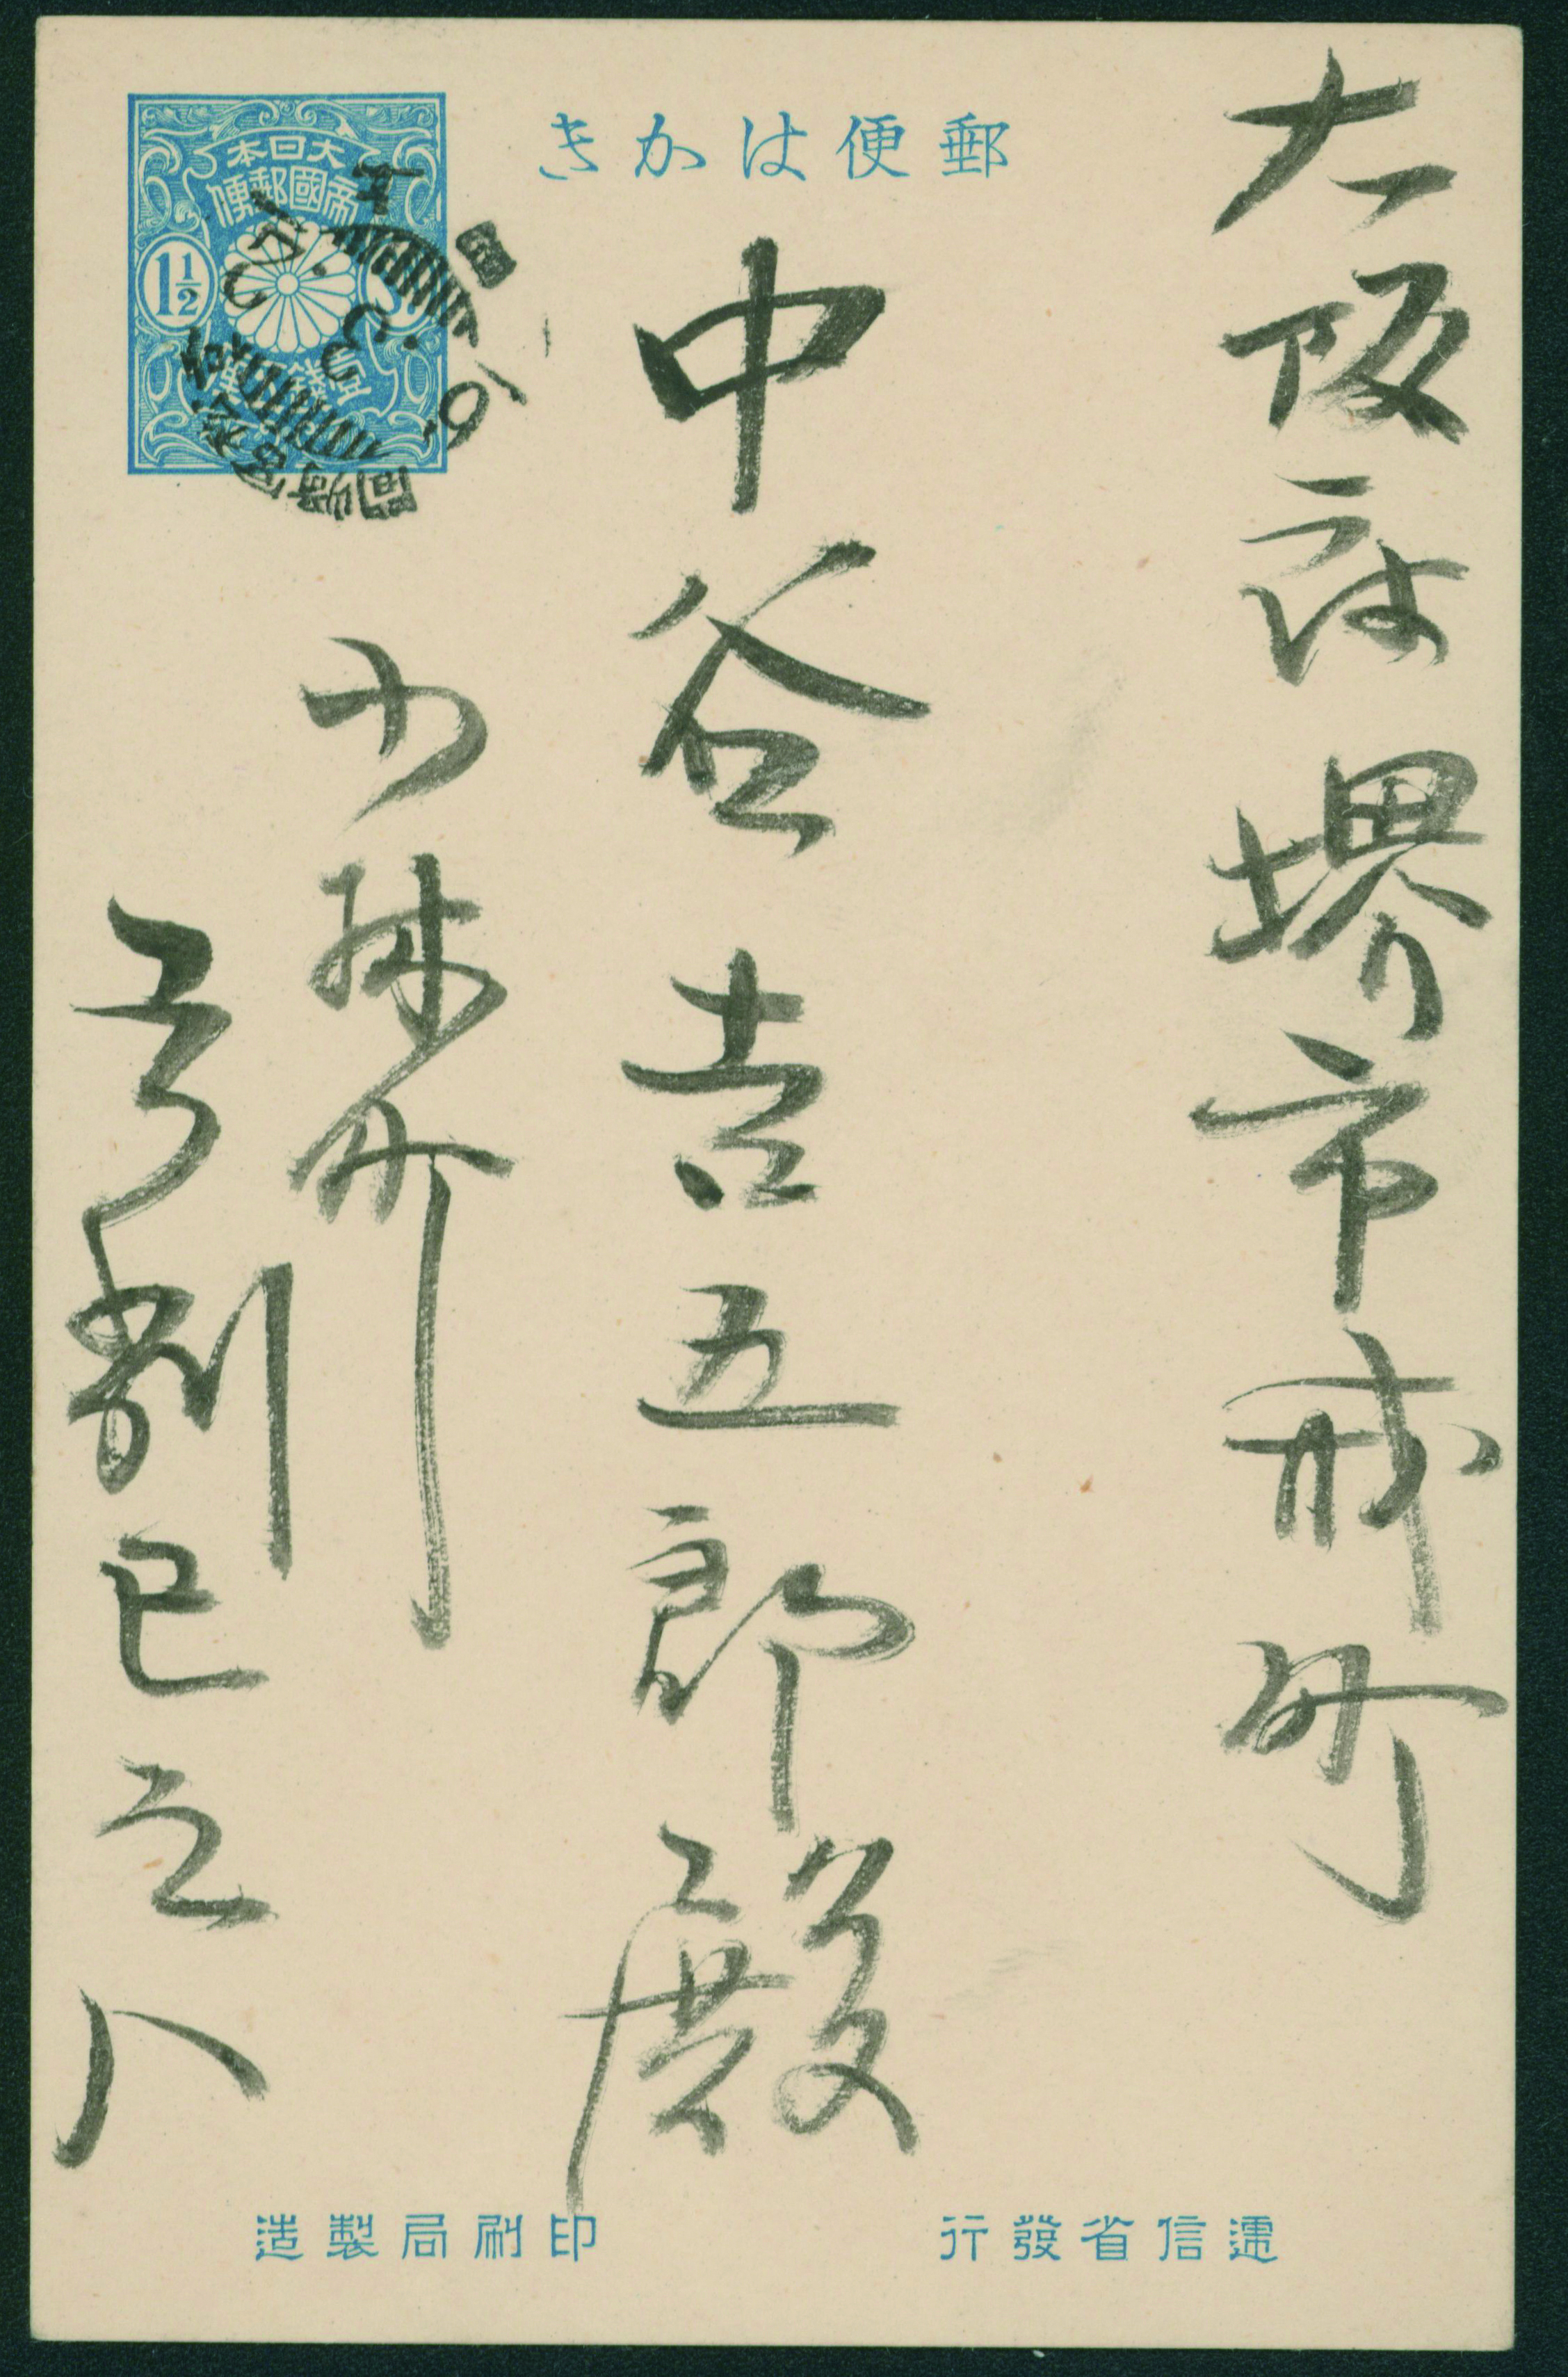 郵便はかき
大日本
帝國郵便
1½
壹錢五厘
大阪府堺市戎町
中谷吉五郎殿
小林町
巳之八
遞信省發行
印刷局製造